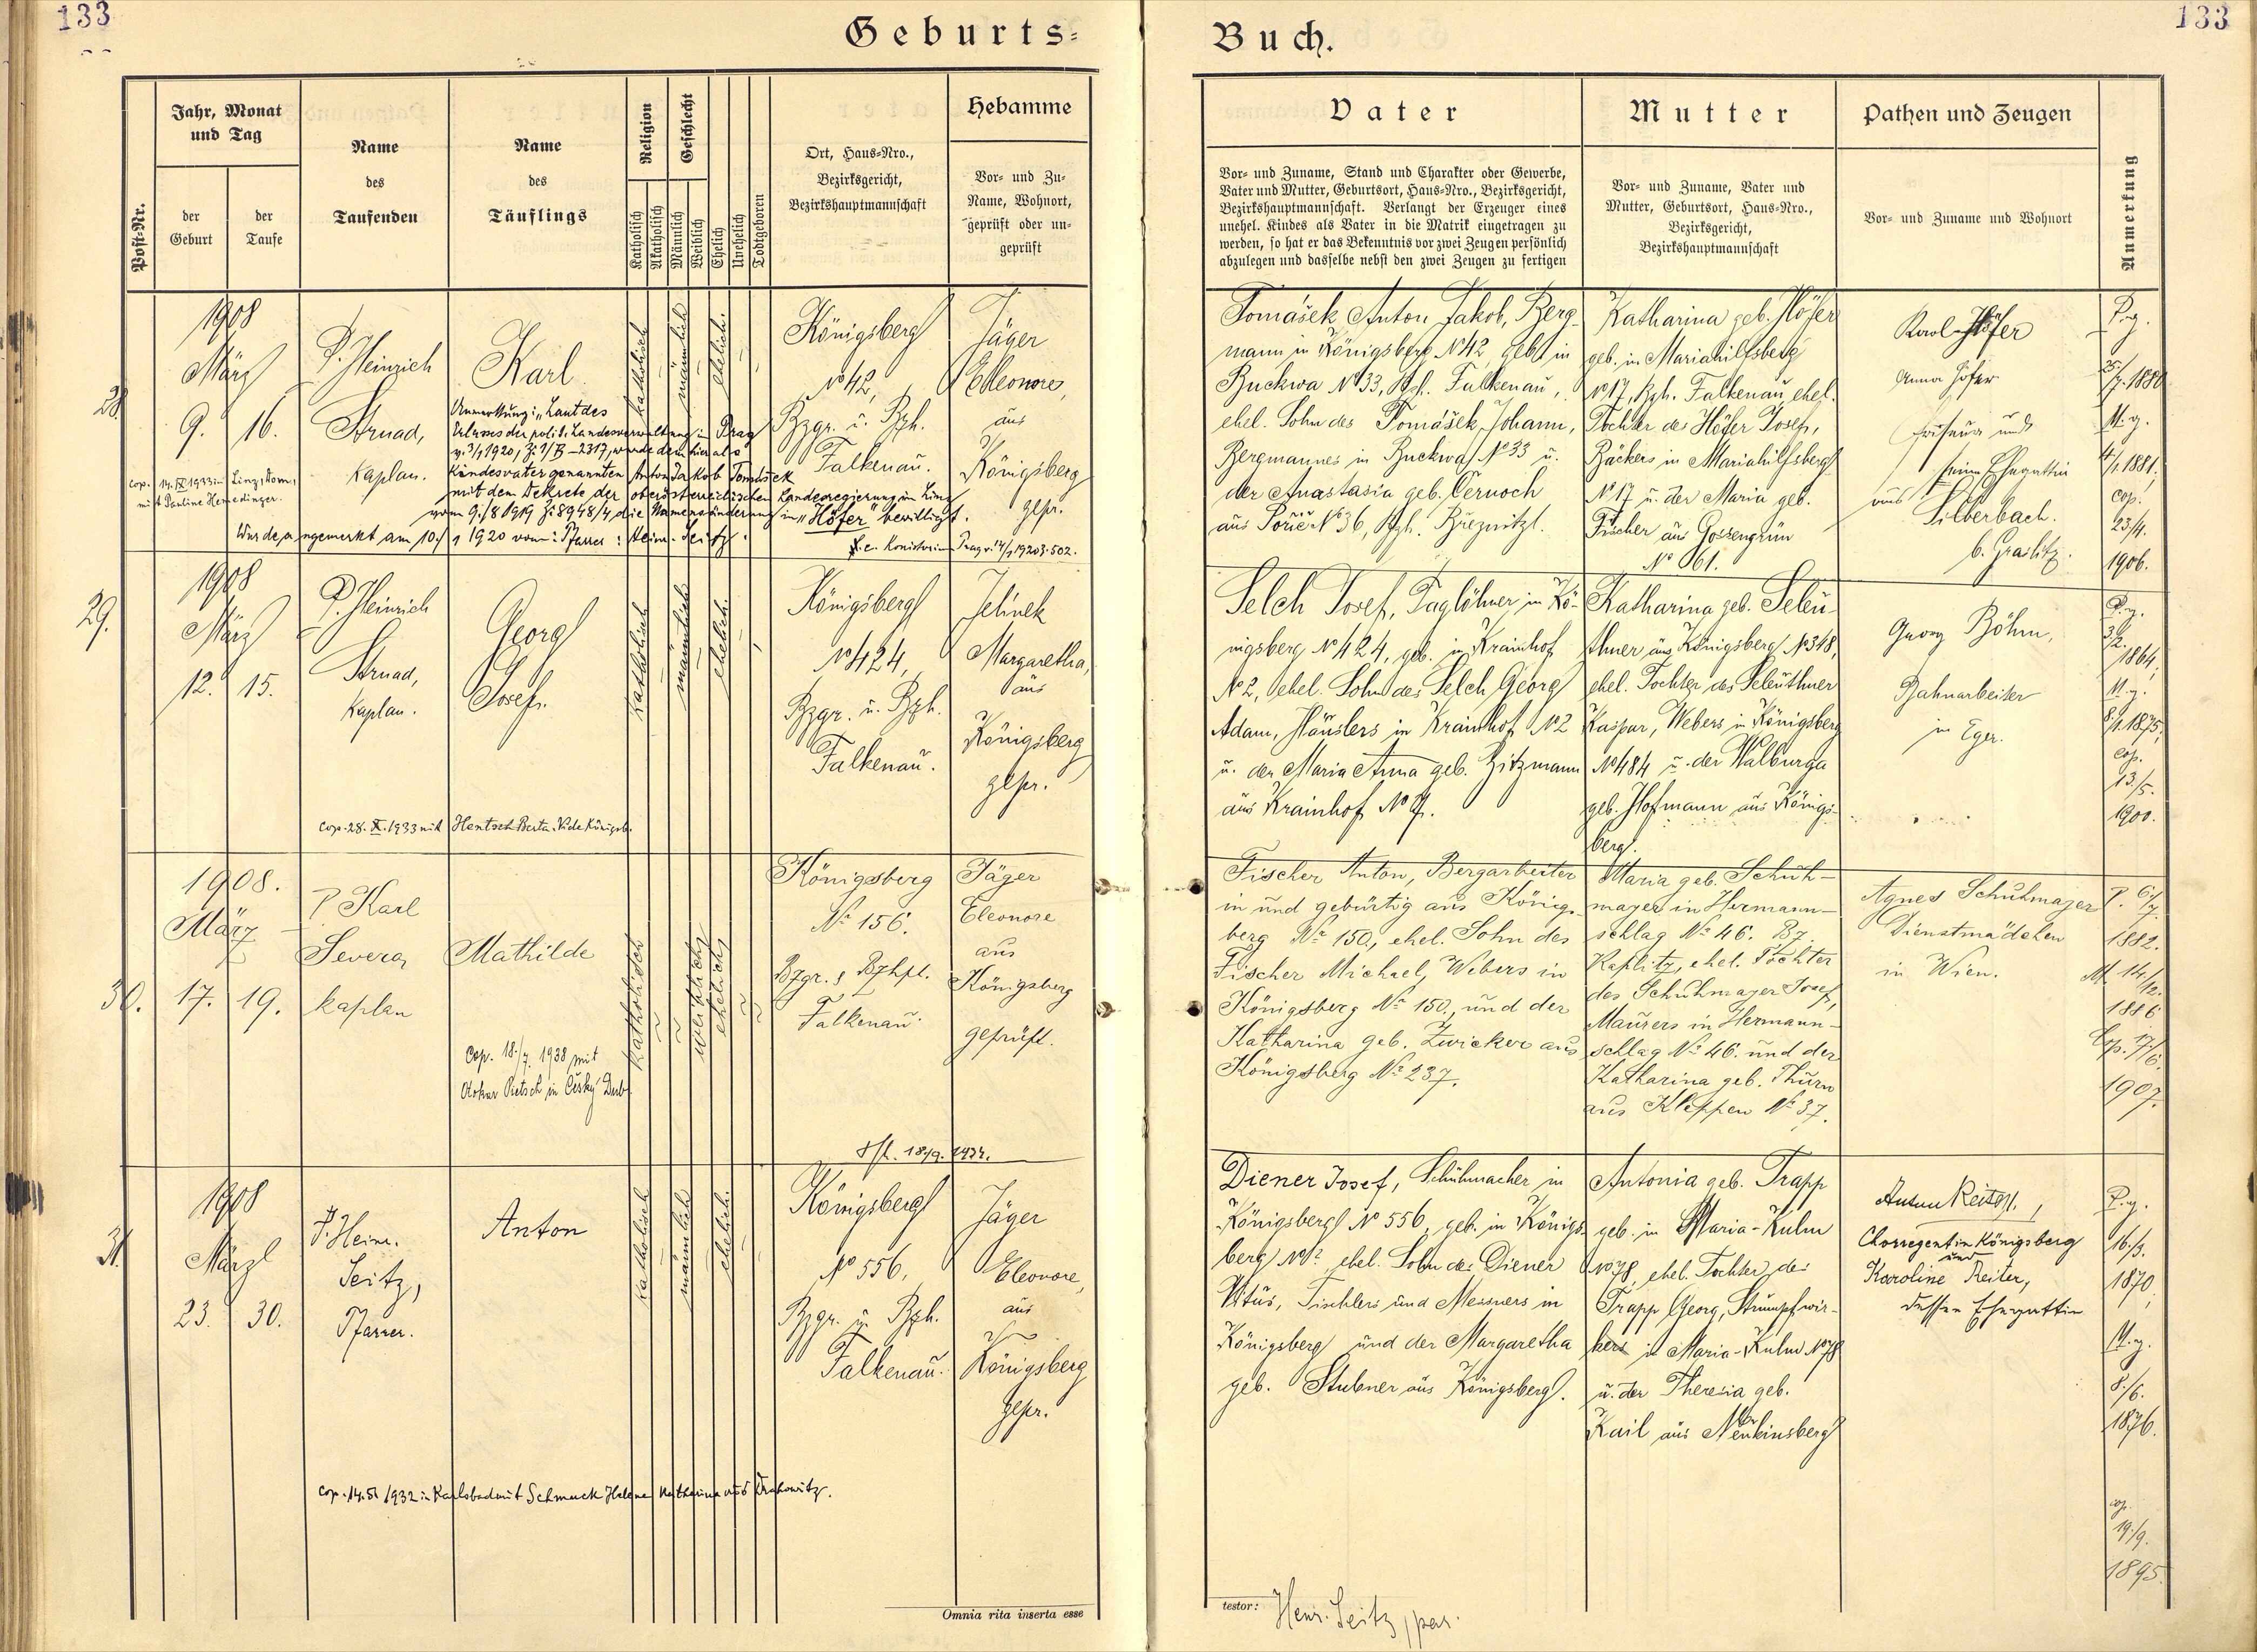 133
Geburts-
Post-Nr.
Jahr, Monat
und Tag
der
Geburt
der
Taufe
Name
des
Taufenden
Name
des
Täuflings
Religion
Katholisch
Akatholisch
Geschlecht
Männlich
Weiblich
Ehelich
Unehelich
Todtgeboren
Ort, Haus-Nro.,
Bezirksgericht,
Bezirkshauptmannschaft
Hebamme
Vor- und Zu-
Name, Wohnort,
geprüft oder un-
geprüft
28.
1908
März
9. 16.
P. Heinrich
Strnad,
Kaplan.
Karl
Anmerkung: „Laut des
Erlasses der polit. Landesverwaltung in Prag
v. 3/1 1920, Z: 1/B-2317, wurde dem hier als
Kindesvater genannten Anton Jakob Tomášek
mit dem Dekrete der oberösterreichischen Landesregierung in Linz
vom 9./8 1919 Z: 8948/4, die Namensänderung in „Höfer" bewilligt.
Wurde angemerkt am 10./1 1920 vom: Pfarrer: Heinr. Seitz.
cop. 14. IX 1933 in Linz, Dom,
mit Pauline Hemedinger.
katholisch
männlich
ehelich.
Königsberg
No 42,
Bzgr. u. Bzh.
Falkenau.
Jäger
Eleonore,
aus
Königsberg
gepr.
29.
1908
März
12. 15.
P. Heinrich
Strnad,
Kaplan.
Georg
Josef.
cop. 28. X. 1933 mit Hentsch Berta. Vide Königsb.
katholisch
männlich
ehelich.
Königsberg
No 424,
Bzgr. u. Bzh.
Falkenau.
Jelinek
Margaretha,
aus
Königsberg
gepr.
30.
1908.
März
17. 19.
P Karl
Severa,
kaplan
Mathilde
Cop. 18./7. 1938 mit
Otokar Pietsch in Český Dub.
katholisch
weiblich
ehelich
Königsberg
No 156.
Bzgr. & Bzhpl.
Falkenau.
Jäger
Eleonore
aus
Königsberg
geprüft.
31.
1908
März
23. 30.
P. Heinr.
Seitz,
Pfarrer.
Anton
cop. 14. 5. 1932 in Karlsbad mit Schmuck Helene Katharina aus
katholisch
männlich
ehelich.
Königsberg
No 556,
Bzgr. u. Bzh.
Falkenau.
Jäger
Eleonore,
aus
Königsberg
gepr.
Omnia rita inserta esse
Buch.
133
Vater
Vor- und Zuname, Stand und Charakter oder Gewerbe,
Vater und Mutter, Geburtsort, Haus-Nro., Bezirksgericht,
Bezirkshauptmannschaft. Verlangt der Erzeuger eines
unehel. Kindes als Vater in die Matrik eingetragen zu
werden, so hat er das Bekenntnis vor zwei Zeugen persönlich
abzulegen und dasselbe nebst den zwei Zeugen zu fertigen
Mutter
Vor- und Zuname, Vater und
Mutter, Geburtsort, Haus-Nro.,
Bezirksgericht,
Bezirkshauptmannschaft
Pathen und Zeugen
Vor- und Zuname und Wohnort
Anmerkung
Tomášek Anton Jakob, Berg-
mann in Königsberg No 42, geb. in
Buckwa No 33, Bzh. Falkenau,
ehel. Sohn des Tomášek Johann,
Bergmannes in Buckwa No 33 u.
der Anastasia geb. Černoch
aus Poříč No 36, Bzh. Březnitz.
Katharina geb. Höfer
geb. in Mariahilfsberg
No 17, Bzh. Falkenau, ehel.
Tochter des Höfer Josef,
Bäckers in Mariahilfsberg
No 17 u. der Maria geb.
Fischer aus Gossengrün
No 61.
Karl Höfer
Anna Höfer
Friseur und
seine Ehegattin
aus Silberbach.
b. Graslitz.
P. g.
25/7. 1880
M. g.
4/1. 1881,
cop.
23/4.
1906.
Selch Josef, Taglöhner in Kö-
nigsberg No 424, geb. in Krainhof
No 2, ehel. Sohn des Selch Georg
Adam, Häuslers in Krainhof No 2
u. der Maria Anna geb. Zitzmann
aus Krainhof No 7.
Katharina geb. Seleu-
thner aus Königsberg No 318,
ehel. Tochter des Seleuthner
Kaspar, Webers in Königsberg
No 484 u. der Walburga
geb. Hofmann aus Königs-
berg.
Georg Böhm,
Bahnarbeiter
in Eger.
P. g.
3/2.
1864,
M. g.
8/1. 1875,
cop.
13/5.
1900.
Fischer Anton, Bergarbeiter
in und gebürtig aus Königs-
berg No 150, ehel. Sohn des
Fischer Michael, Webers in
Königsberg No 150, und der
Katharina geb. Zwicker aus
Königsberg No 237.
Maria geb. Schuh-
mayer in Hermann-
schlag No 46. Bz.
Kaplitz, ehel. Tochter
des Schuhmayer Josef,
Maurers in Hermann-
schlag No 46. und der
Katharina geb. Thürn
aus Kleppen No 37.
Agnes Schuhmajer
Dienstmädchen
in Wien.
P. 6/7.
1882.
M. 14/12.
1886
Cop. 17/6.
1907.
Diener Josef, Schuhmacher in
Königsberg No 556, geb. in Königs-
berg No ?, ehel. Sohn des Diener
Vitus, Tischlers und Messners in
Königsberg und der Margaretha
geb. Stubner aus Königsberg.
Antonia geb. Trapp
geb. in Maria-Kulm
No 78, ehel. Tochter des
Trapp Georg, Strumpfwir-
kers in Maria-Kulm No 78
u. der Theresia geb.
Kail aus Neukinsberg
Anton Reiter,
Chorregent in Königsberg
und
Karoline Reiter,
dessen Ehegattin
P. g.
16/3.
1870,
M. g.
8./6.
1876.
cop.
19./9.
1895.
testor: Henr. Seitz, par.